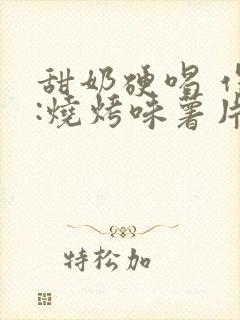 甜奶硬唱
:燒烤味薯片
特松加